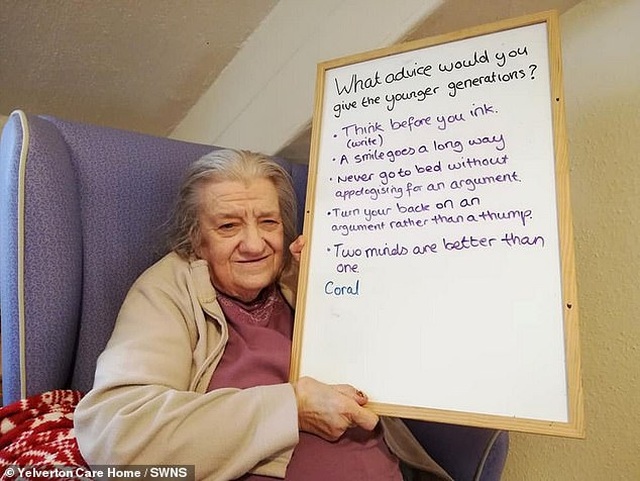 What advice would you
give the younger generations?
• Think before you ink.
(write)
• A smile goes a long way
• Never go to bed without
appologising for an argument.
• Turn your back on an
argument rather than a thump.
• Two minds are better than
one.
Coral
© Yelverton Care Home / SWNS